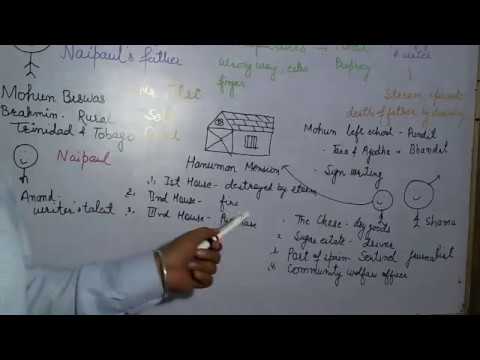 Naipaul's father
wrong way,
finger
a writer
death of father by drowning
Mohun Biswas
Brahmin - Rural
Trinidad & Tobago
Naipaul
Anand -
writer's talent
Hanuman Mension
1. Ist House - destroyed by storm
2. IInd House - fire
3. IIIrd House - Purchase
Mohun left school - Pundit
Tara & Ajodha - Bhandit
- Sign writing
Shama
The Chase - dry goods
2. Sugar estate - Driver
Part of Sentinel journalist
4. Community welfare officer